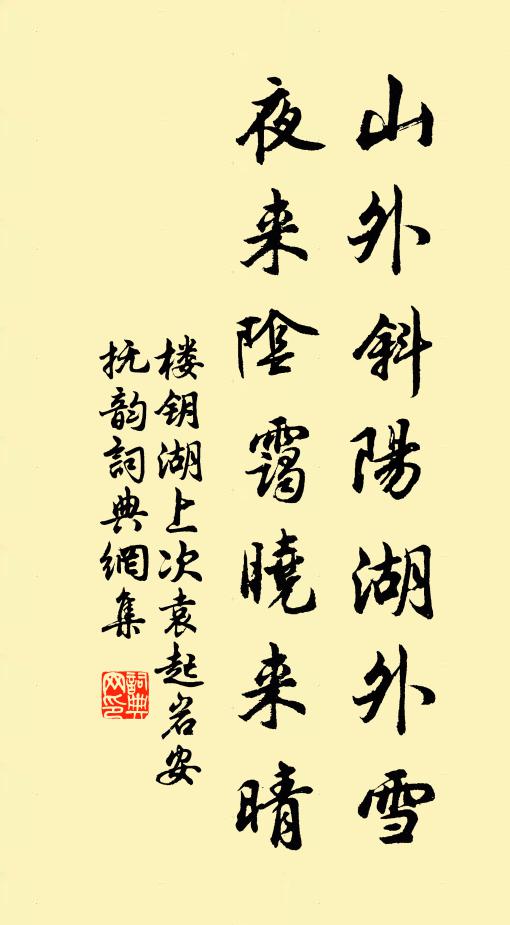 山外斜陽湖外雪
夜来陰靄曉来晴
楼钥湖上次袁起岩安
抚韵詞典網集
詞典
网印